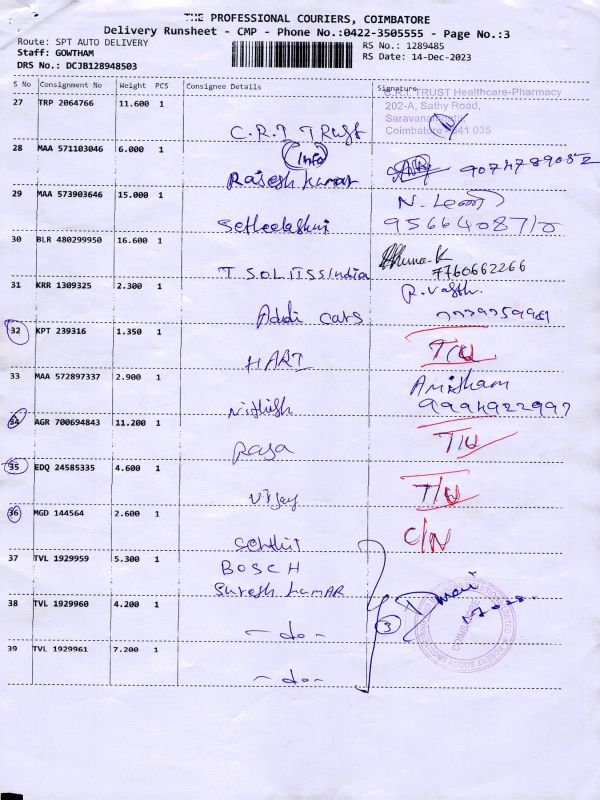 THE PROFESSIONAL COURIERS, COIMBATORE
Delivery Runsheet - CMP - Phone No.:0422-3505555 - Page No.:3
Route: SPT AUTO DELIVERY
RS No.: 1289485
Staff: GOWTHAM
RS Date: 14-Dec-2023
DRS No.: DCJB128948503
S No Consignment No Weight PCS Consignee Details Signature
C.R.T TRUST Healthcare-Pharmacy
27 TRP 2064766 11.600 1
202-A, Sathy Road,
Coimbatore
C.R.T TRUST
28 MAA 571103046 6.000 1
(Info)
Rajesh kumar
29 MAA 573903646 15.000 1
9566408710
30 BLR 480299950 16.600 1
7760662266
31 KRR 1309325 2.300 1
Addi cars
32 KPT 239316 1.350 1
HARI T/U
33 MAA 572897337 2.900 1
Nithish
34 AGR 700694843 11.200 1
Raja T/U
35 EDQ 24585335 4.600 1
Vijay T/U
36 MGD 144564 2.600 1
C/N
37 TVL 1929959 5.300 1
BOSCH
Suresh kumAR
38 TVL 1929960 4.200 1
- do - 3
39 TVL 1929961 7.200 1
- do -